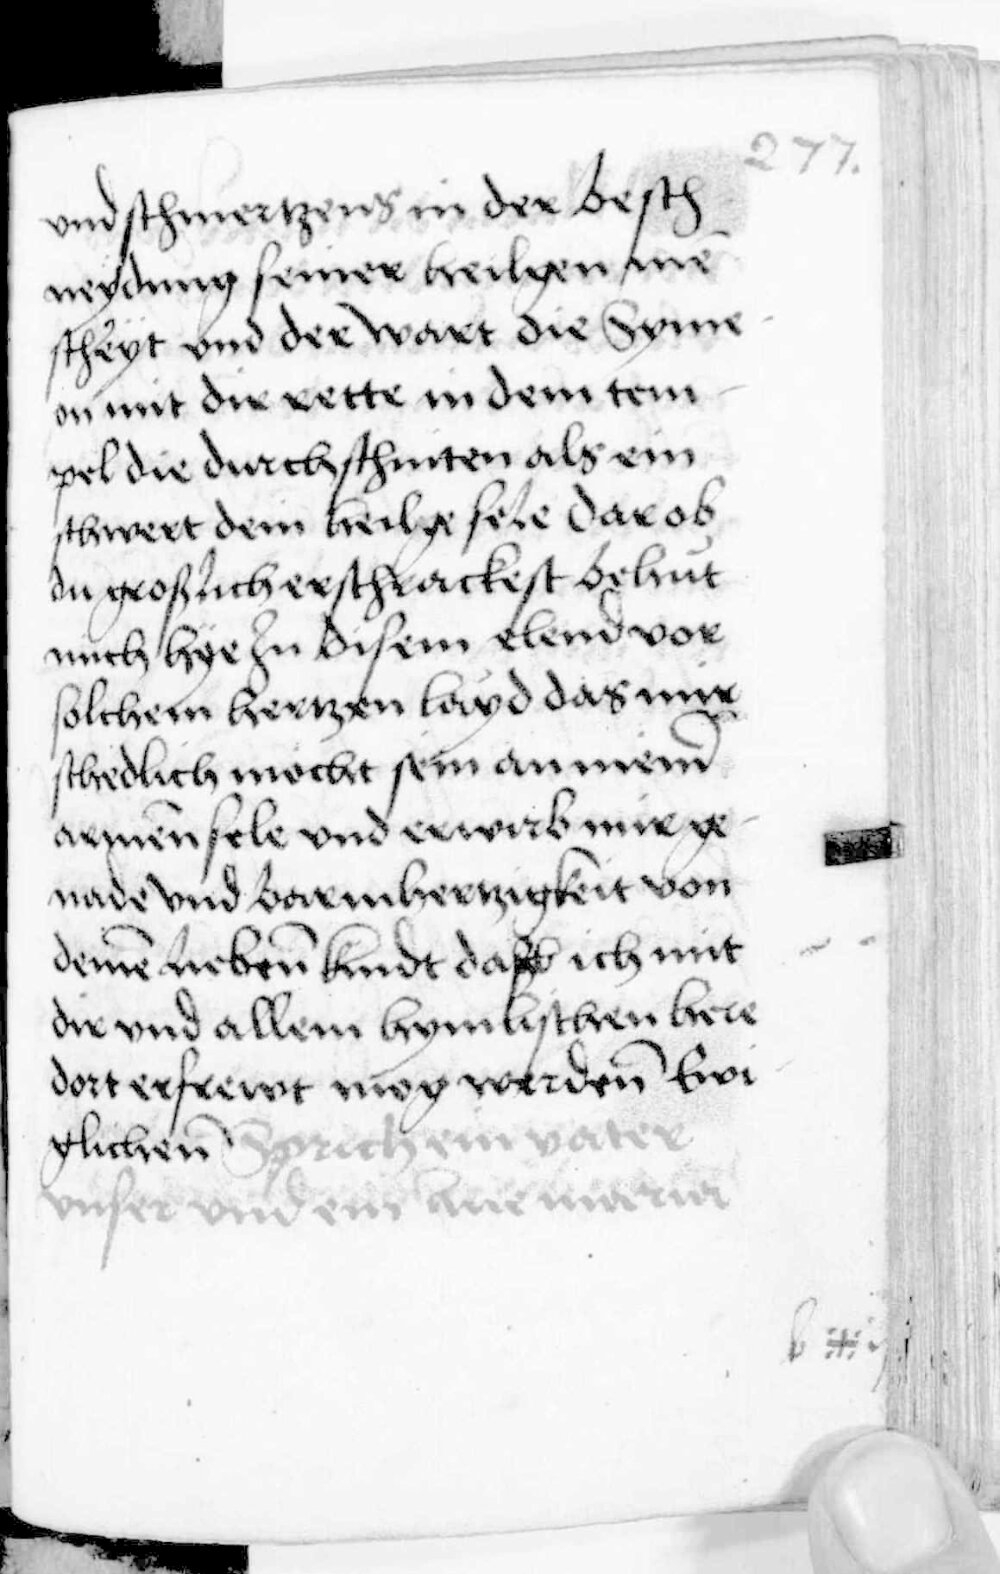 277.
vnd schmertzens in der besch
neydung seiner heilgen mē
scheyt vnd der wart die Syme
on mit dir rette in dem tem
pel die durch schniten als ein
schwert dein heilge sele Dar ob
du groslich erschrackest behüt
mich hÿe In disem elend vor
solchem hertzen layd das mir
schedlich mocht sein an meinē
armen̄ sele vnd erwirb mir ge
nade vnd barmhertzigkeit von
deinē lieben̄ kindt das ich mit
dir vnd allem hymlischen here
dort erfrewt mog werden̄ Ewi
glichen̄ Sprich ein vater
vnser vnd ein aue maria